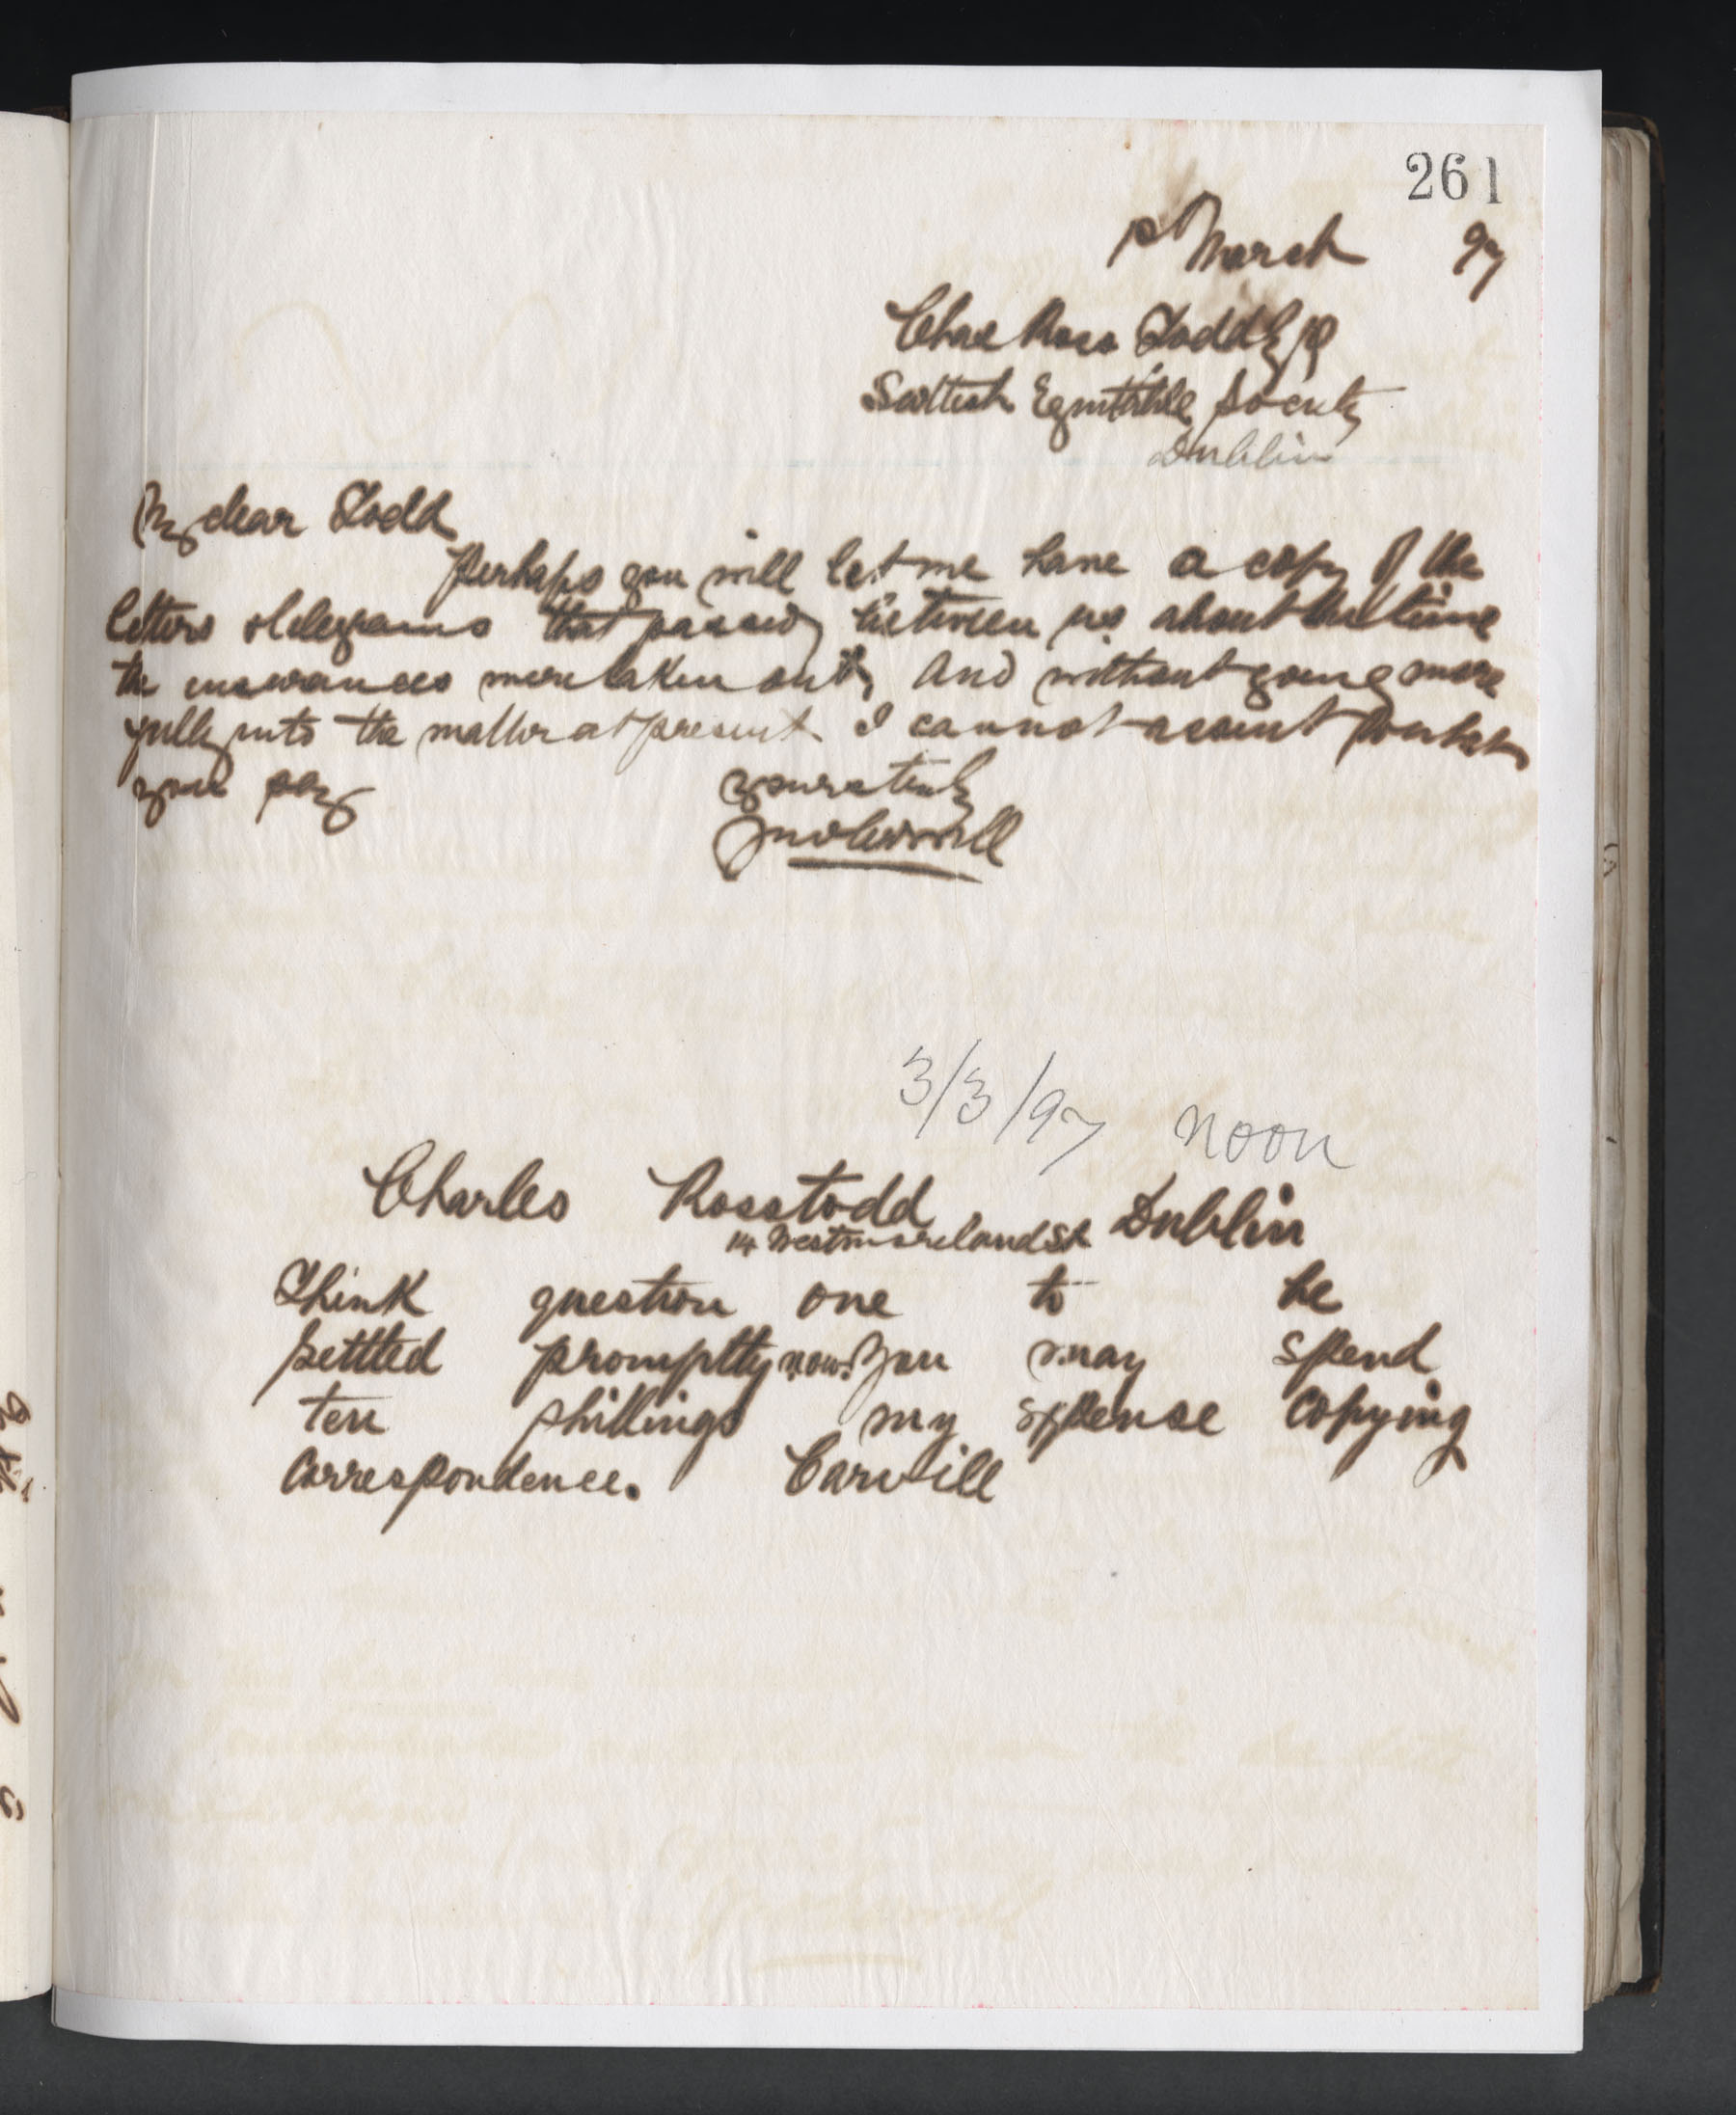 261
1st March 97
Chas Ross Todd Esq
Scottish Equitable Society
Dublin
My dear Todd
Perhaps you will let me have a copy of the
letters & telegrams that passed between us about the time
the insurances were taken out, And without going more
fully into the matter at present I cannot assent to what
you say
yours truly
Jno Carvill
3/3/97 noon
Charles Rosstodd Dublin
14 Westmoreland St
Think question one to be
settled promptly now. You may spend
ten shillings my expense copying
correspondence. Carvill